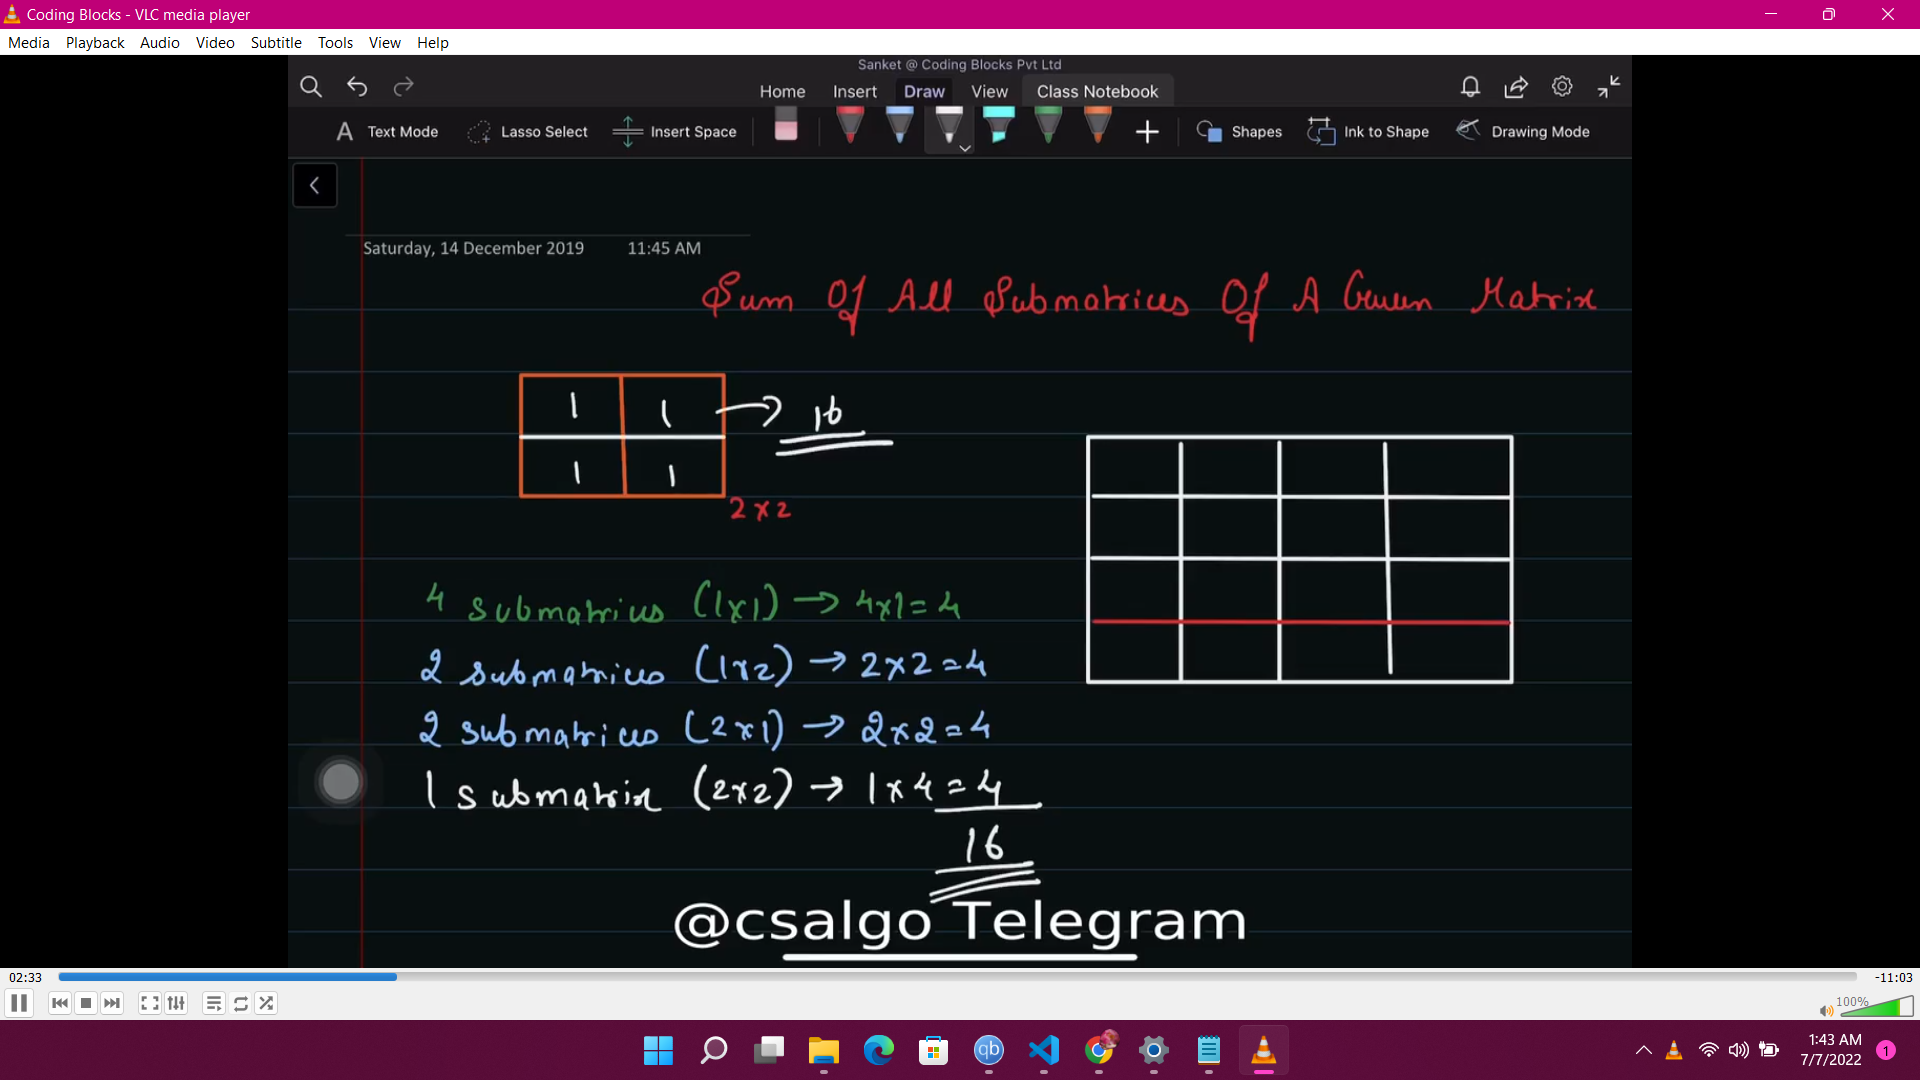 Coding Blocks - VLC media player
Media Playback Audio Video Subtitle Tools View Help
Sanket @ Coding Blocks Pvt Ltd
Home Insert Draw View Class Notebook
Text Mode Lasso Select Insert Space Shapes Ink to Shape Drawing Mode
Saturday, 14 December 2019 11:45 AM
Sum Of All Submatrices Of A Given Matrix
1 1 → 16
1 1
2 x 2
4 submatrices (1x1) → 4x1 = 4
2 submatrices (1x2) → 2x2 = 4
2 submatrices (2x1) → 2x2 = 4
1 submatrix (2x2) → 1x4 = 4
16
@csalgo Telegram
02:33 -11:03
100%
qb
1:43 AM
7/7/2022 1